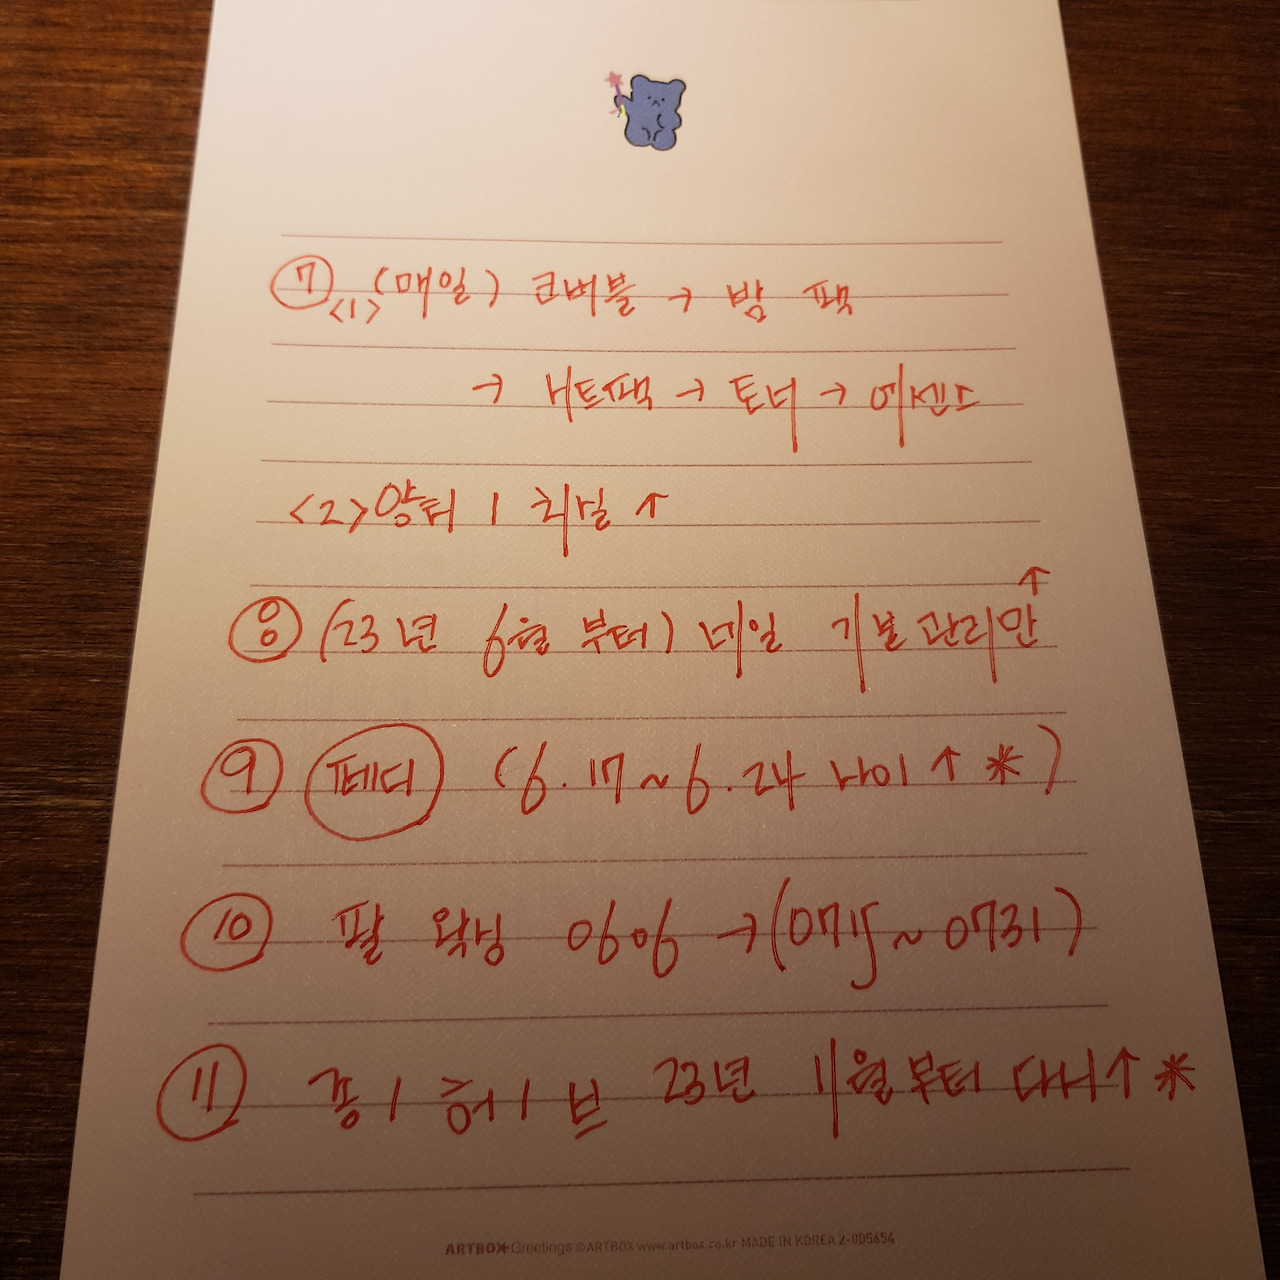 ⑦ <1> (매일) 코버블 → 밤 팩
→ 시트팩 → 토너 → 에센스
<2> 앙터 1 최닐 ↑
⑧ (23년 6월 부터) 네일 기본관리만 ↑
⑨ 페디 (6.17~6.24 사이 ↑ *)
⑩ 팔 왁싱 0606 → (0715 ~ 0731)
⑪ 종 1 허 1 브 23년 11월부터 다니 ↑ *
ARTBOX Greetings ©ARTBOX www.artbox.co.kr MADE IN KOREA 2-005654